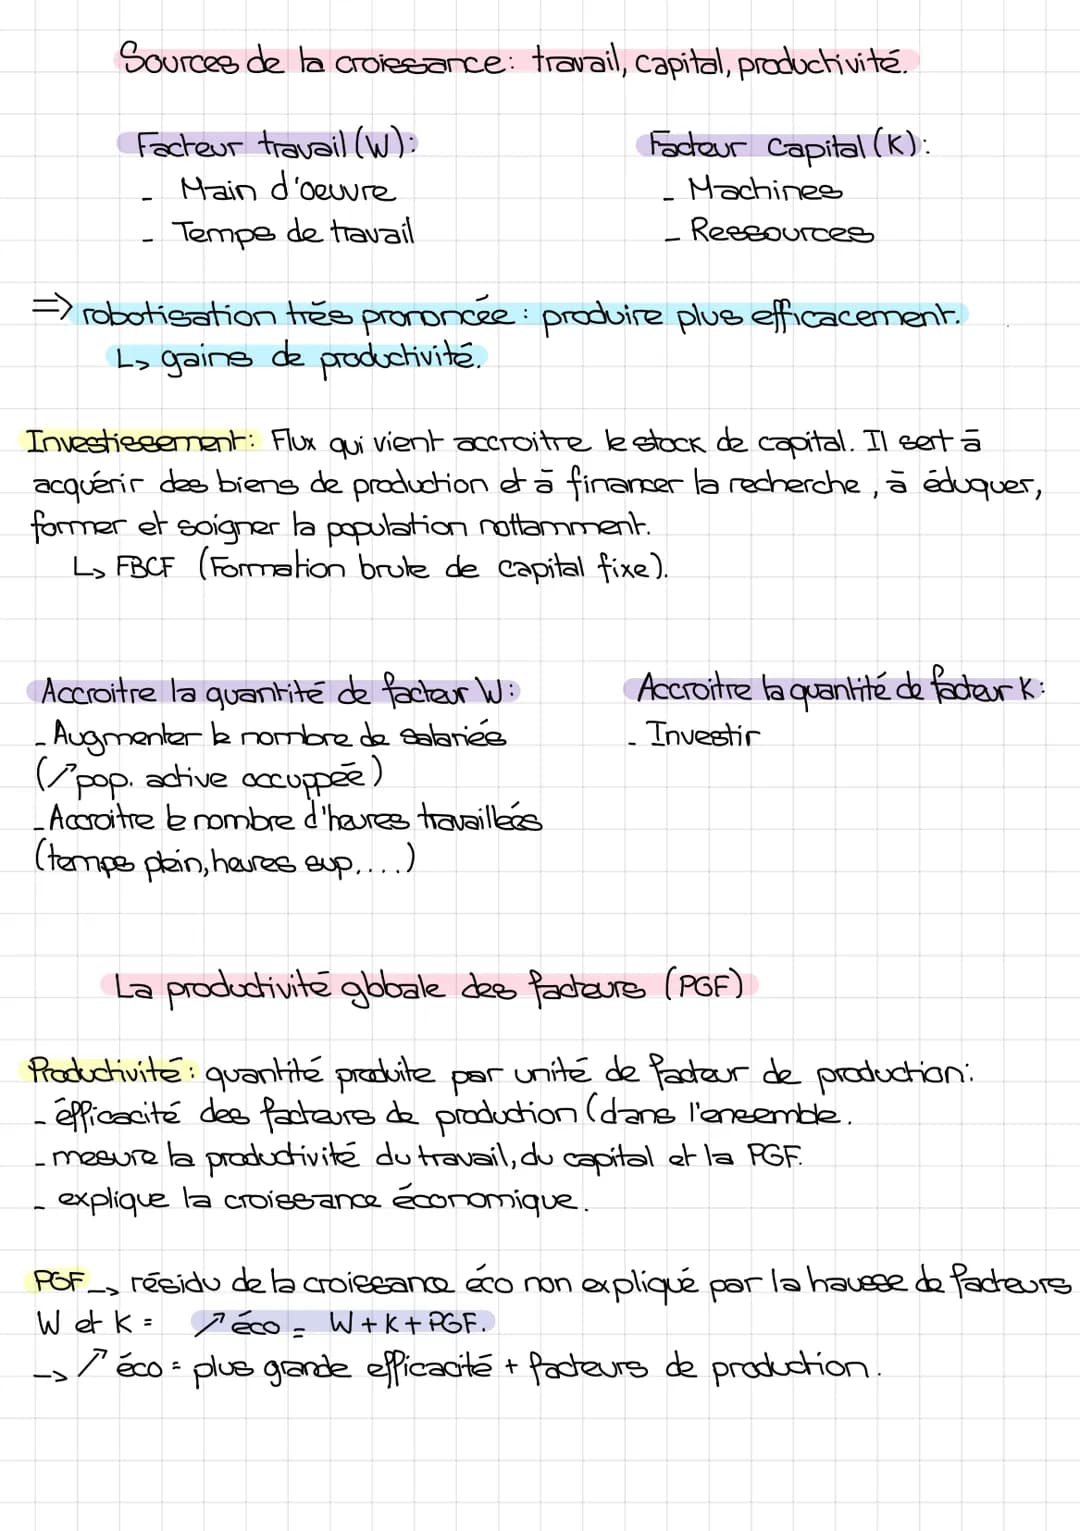 Sources de la croissance: travail, capital, productivité.
Facteur travail (W):
- Main d'oeuvre
- Temps de travail
Facteur Capital (K):
- Machines
- Ressources
=> robotisation très prononcée : produire plus efficacement.
↳ gains de productivité.
Investissement: Flux qui vient accroitre le stock de capital. Il sert à
acquérir des biens de production et à financer la recherche, à éduquer,
former et soigner la population nottamment.
↳ FBCF (Formation brute de capital fixe).
Accroitre la quantité de facteur W:
- Augmenter le nombre de salariés
(↗pop. active occuppée)
- Accroitre le nombre d'heures travaillées
(temps plein, heures sup,....)
Accroitre la quantité de facteur K:
- Investir
La productivité globale des facteurs (PGF)
Productivité: quantité produite par unité de facteur de production:
- éfficacité des facteurs de production (dans l'ensemble.
- mesure la productivité du travail, du capital et la PGF.
- explique la croissance économique.
PGF -> résidu de la croissance éco non expliqué par la hausse de facteurs
W et K = ↗ éco = W+K+PGF.
-> ↗ éco = plus grande efficacité + facteurs de production.